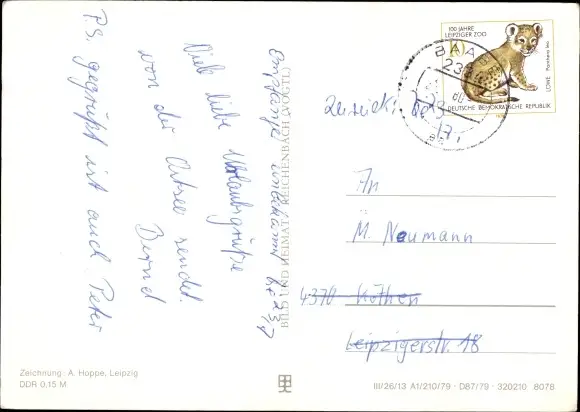 Viele liebe Urlaubsgrüße
von der Ostsee sendet
Bernd
P.S. gegrüßt ist auch Peter
Empfänger unbekannt
BILD UND HEIMAT REICHENBACH (VOGTL)
100 JAHRE
LEIPZIGER ZOO
LÖWE Panthera leo
DEUTSCHE DEMOKRATISCHE REPUBLIK
Zurück!
An
M. Neumann
4370 Köthen
Leipzigerstr. 18
Zeichnung: A. Hoppe, Leipzig
DDR 0,15 M
III/26/13 A1/210/79 · D87/79 · 320210 8078